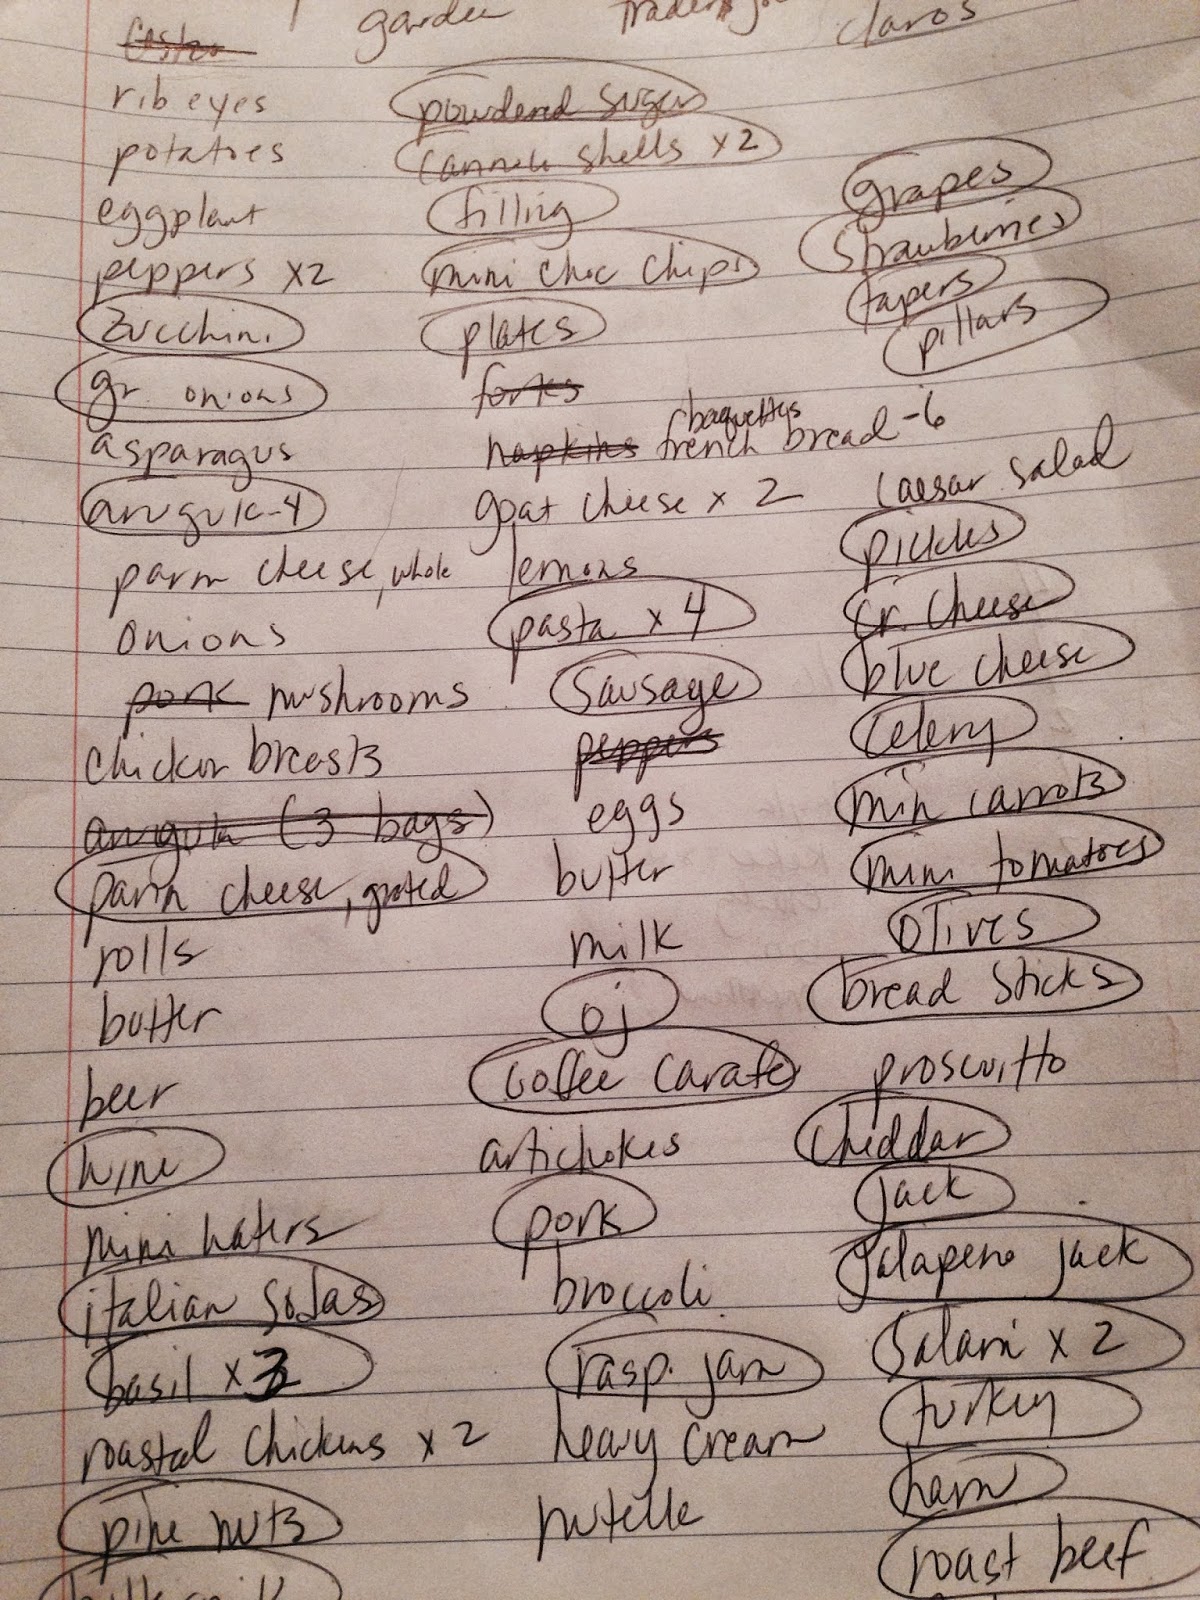 Costco garden Trader Jo claros
rib eyes
potatoes
eggplant
peppers x2
zucchini
gr. onions
asparagus
arugula-4
parm cheese, whole
onions
pork mushrooms
chicken breasts
arugula (3 bags)
parm cheese, grated
rolls
butter
beer
wine
mini waters
italian sodas
basil x3
roasted chickens x 2
pine nuts
powdered sugar
cannoli shells x 2
filling
mini choc chips
plates
forks
baguettes
napkins french bread -6
goat cheese x 2
lemons
pasta x 4
sausage
peppers
eggs
butter
milk
oj
coffee carafe
artichokes
pork
broccoli
rasp. jam
heavy cream
nutella
grapes
strawberries
tapers
pillars
caesar salad
pickles
cr. cheese
blue cheese
celery
mini carrots
mini tomatoes
olives
bread sticks
proscuitto
cheddar
jack
jalapeno jack
salami x 2
turkey
ham
roast beef